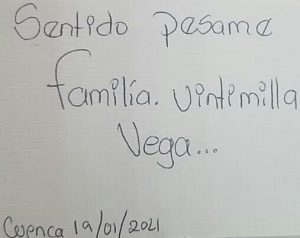 Sentido pesame
familia. Vintimilla
Vega...
Cuenca 19/01/2021